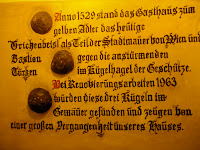 Anno 1529 stand das Gasthaus zum
gelben Adler das heutige
Griechenbeisl als Teil der Stadtmauer von Wien und
Bastion gegen die anstürmenden
Türken im Kugelhagel der Geschütze.
Bei Renovierungsarbeiten 1963
wurden diese drei Kugeln im
Gemäuer gefunden und zeugen von
einer großen Vergangenheit unseres Hauses.